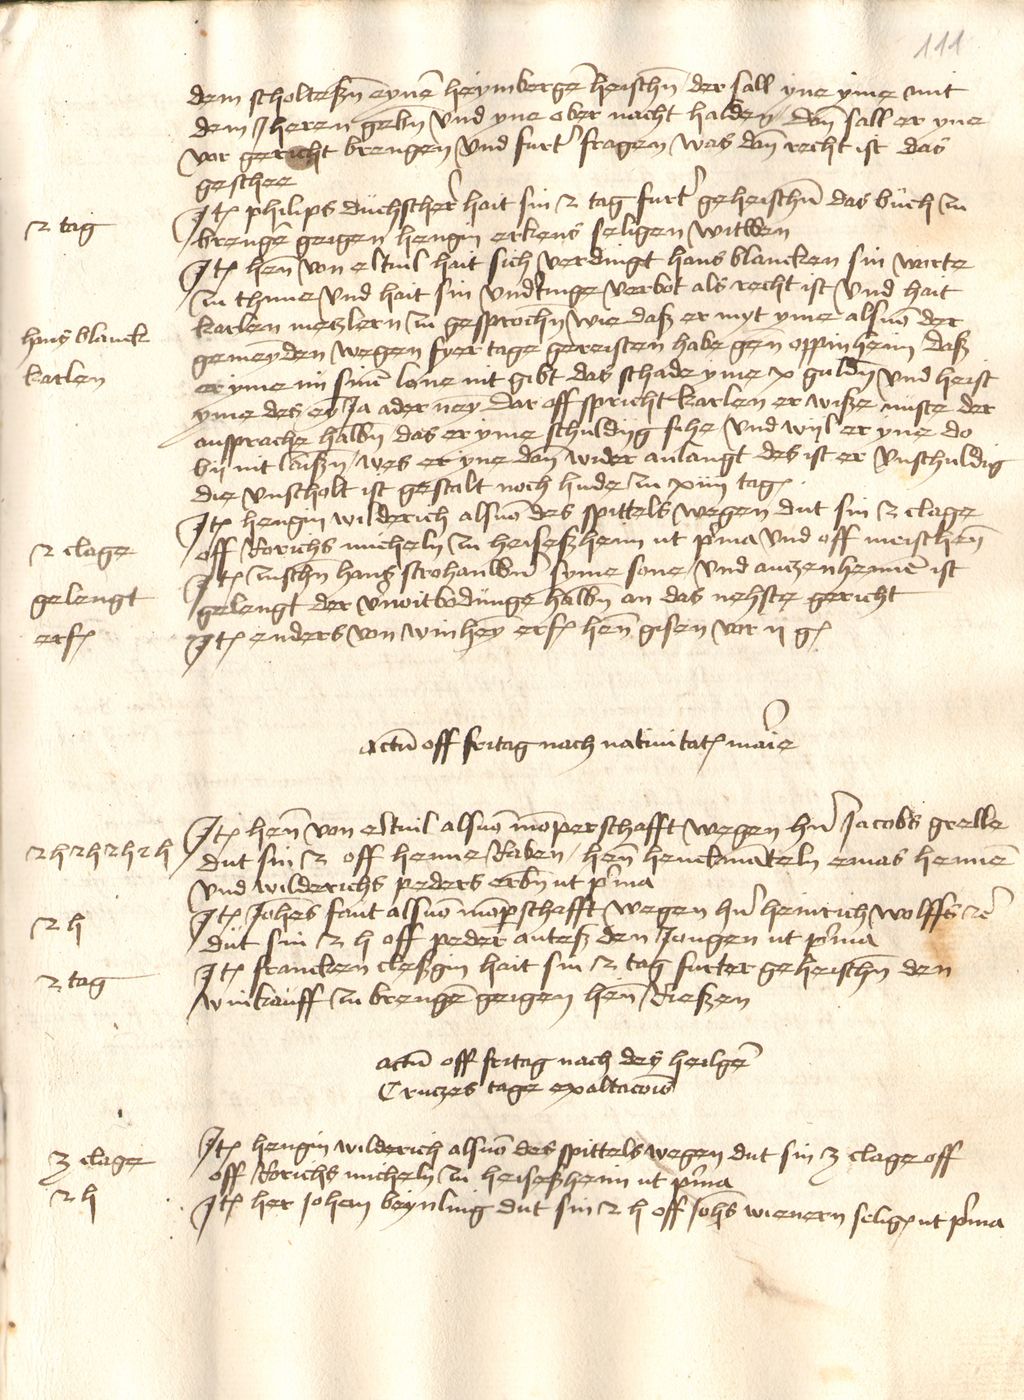 111
dem scholteßn eynē heymbergē heischn der sall yne yme mit
dem heren gebn vnd yne ober nacht halden dan sall er yne
vor gericht brengen vnd furt' fragen was dan recht ist das
geschee
2 tag
Jt philips duchscherer hait sin 2 tag furt' geheischn das buch zu
brengē geigen hengin erkens seligen witwen
Jt hen von eltuil hait sich verdingt hans blancken sin worte
zu thune vnd hait sin vnd'tinge verbot als recht ist vnd hait
hans blanck
karlen
karlen metzlern zu gesprochn wie daß er myt yme als vō der
gemeynden wegen fyer tage gereisten habe gen oppinheim daß
er yme nu sinē lone nit gibt das schade yme x guldn vnd heist
yme des ey Ja ader ney dar off spricht karlen er wiße nuste der
ansprache halbn das er yme schuldig sihe vnd wyl er yne do
by nit laißn wes er yne dan wider anlangt des ist er vnschuldig
die vnscholt ist gestalt noch hude zu xiiii tag
2 clage
Jt hengin wilderich als vō des spittels wegen dut sin 2 clage
off Rorichs micheln zu heiseßheim ut p'ma vnd off meischen
gelengt
Jt zuschn hans strohanwer syme sone vnd anczenhenne ist
gelengt der v'noitbodunge halbn an das nehste gericht
erf
Jt enders von winhey erf hen gisen vor ii g
actū off fritag nach natiuitat marie
2 h 2 h 2 h 2 h
Jt hen von eltuil als vō momperschafft wegen h'n Jacobs grelle
dut sin 2 off henne Raben / hen henckmanteln emas hennē
vnd wilderichs peders erbn ut p'ma
2 h
Jt Johes faut als vō momperschafft wegen h'n heinrich wolffs
dut sin 2 h off peder anteß den Jongen ut p'ma
2 tag
Jt francken cleßgin hait sin 2 tag furter geheischn den
winkauff zu brengē geigen hen Rießen
actū off fritag nach des heilgē
Cruczes tage exaltacōis
3 clage
Jt hengin wilderich als vō des spittels wegen dut sin 3 clage off
off Rorichs micheln zu heiseßheim ut p'ma
2 h
Jt her Johan beynling dut sin 2 h off Johs wienern selig ut p'ma